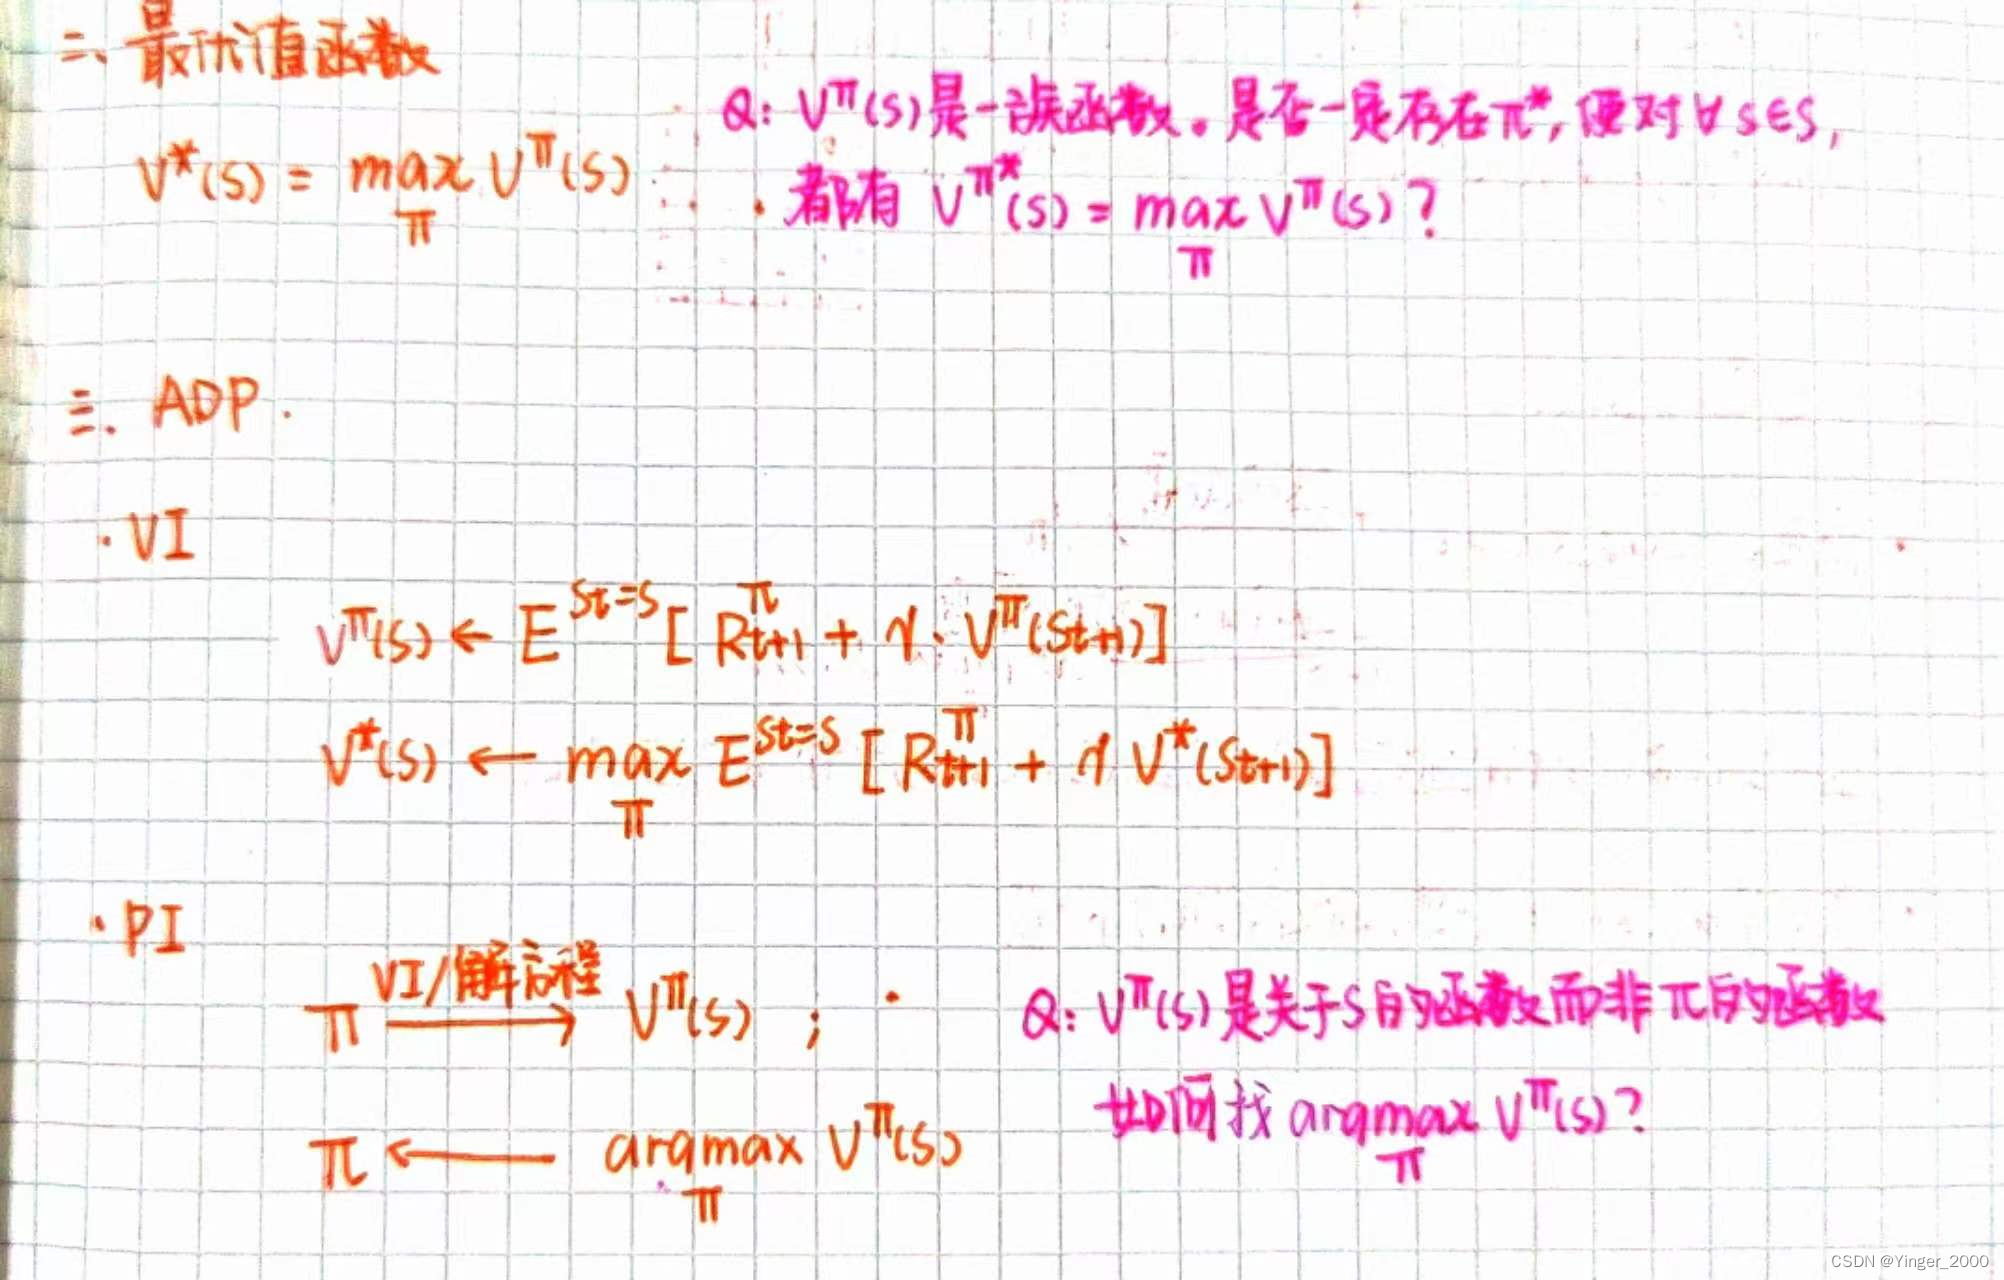 二、最优值函数
V*(s) = max V^π(s)
π
Q: V^π(s)是一族函数。是否一定存在π*, 使对∀s∈S,
都有 V^π*(s) = max V^π(s)?
π
三. ADP.
· VI
V^π(s) ← E^{St=s}[R^π_{t+1} + γ · V^π(S_{t+1})]
V*(s) ← max E^{St=s}[R^π_{t+1} + γ V*(S_{t+1})]
π
· PI
VI/解方程
π → V^π(s) ;
π ← argmax V^π(s)
π
Q: V^π(s)是关于s的函数而非π的函数
如何找 argmax V^π(s)?
π
CSDN @Yinger_2000